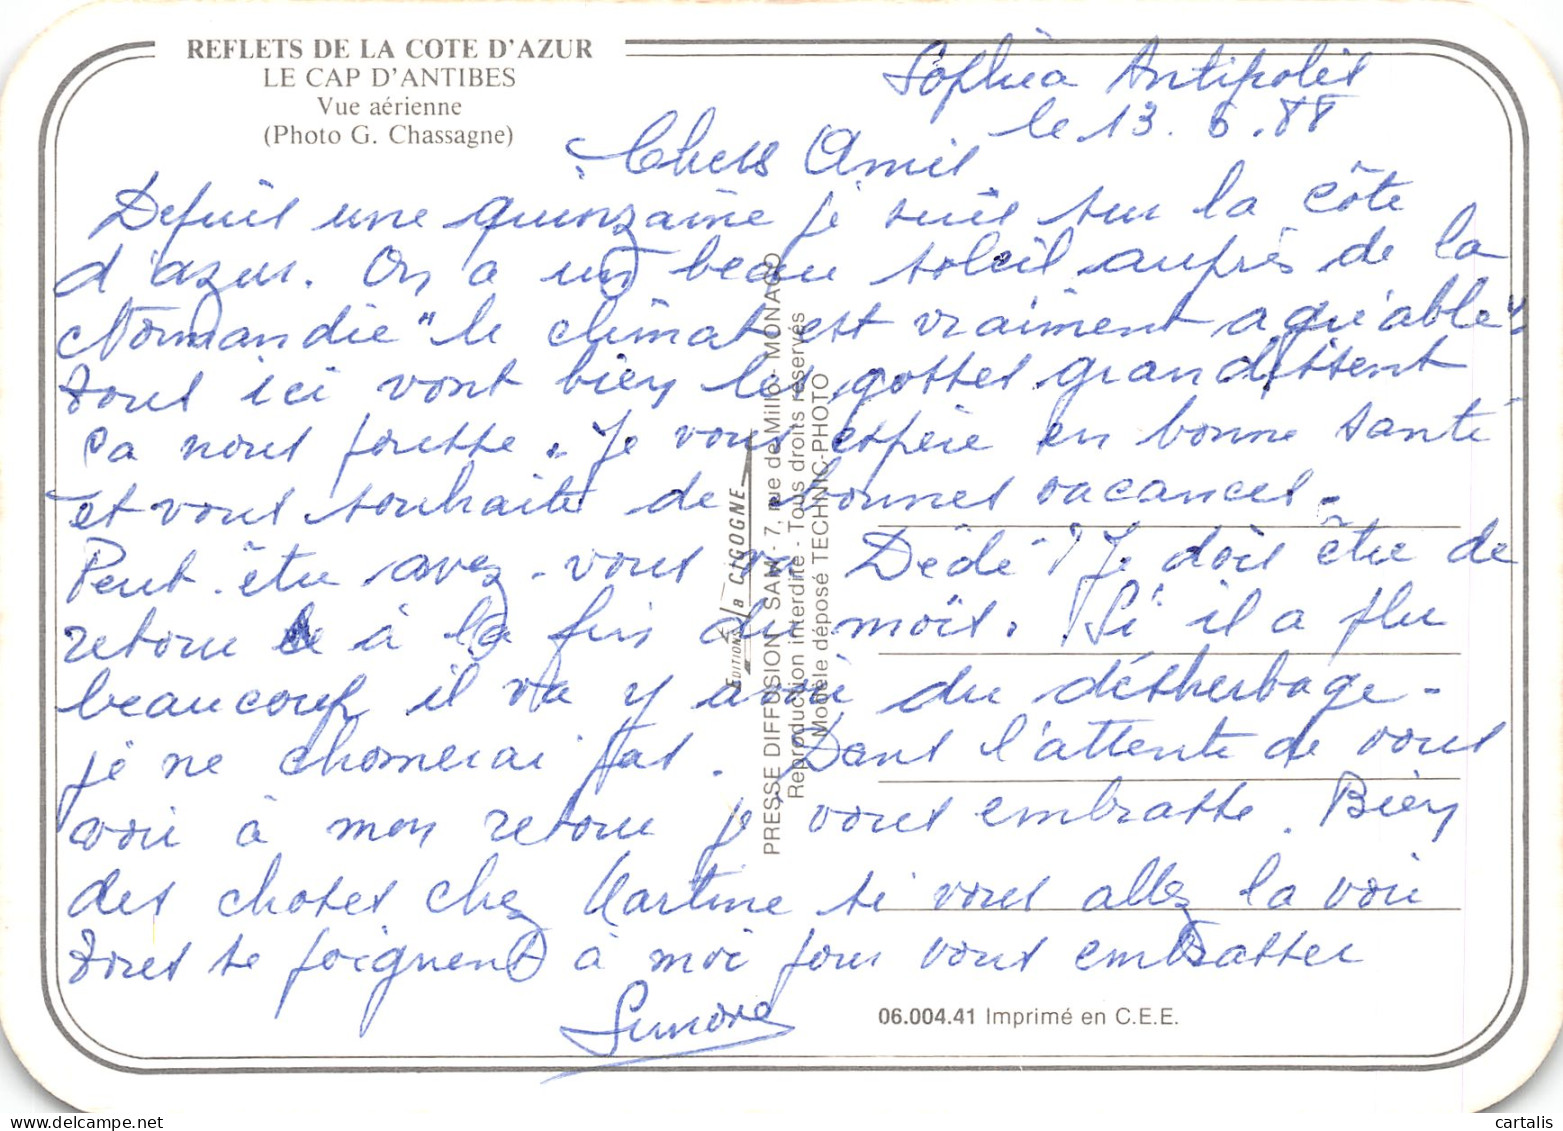 REFLETS DE LA COTE D'AZUR
LE CAP D'ANTIBES
Vue aérienne
(Photo G. Chassagne)
Sophia Antipolis
le 13.6.88
Chers Amis
Depuis une quinzaine je suis sur la côte
d'azur. On a un beau soleil auprès de la
Normandie "le climat est vraiment agréable"
tous ici vont bien les gosses grandissent
ça nous pousse. Je vous espère en bonne santé
et vous souhaite de bonnes vacances.
Peut-être avez-vous vu Dédé? Je dois être de
retour à la fin du mois. Si il a plu
beaucoup il va y avoir du désherbage -
je ne chomerai pas. Dans l'attente de vous
voir à mon retour je vous embrasse. Bien
des choses chez Martine si vous allez la voir
tous se joignent à moi pour vous embrasser
Simone
EDITIONS la CIGOGNE
PRESSE DIFFUSION SAM - 7, rue de Millo - MONACO
Reproduction interdite - Tous droits réservés
Modèle déposé TECHNIC-PHOTO
06.004.41 Imprimé en C.E.E.
www.delcampe.net
cartalis